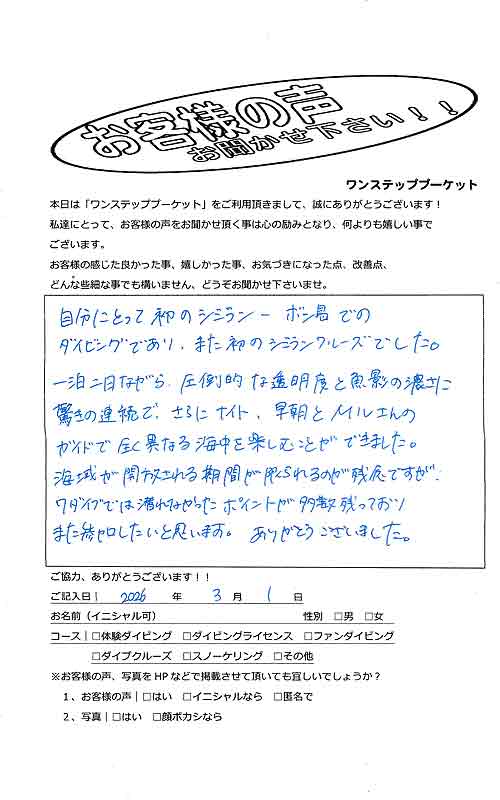 お客様の声
お聞かせ下さい！！
ワンステッププーケット
本日は「ワンステッププーケット」をご利用頂きまして、誠にありがとうございます！
私達にとって、お客様の声をお聞かせ頂く事は心の励みとなり、何よりも嬉しい事で
ございます。
お客様の感じた良かった事、嬉しかった事、お気づきになった点、改善点、
どんな些細な事でも構いません、どうぞお聞かせ下さいませ。
自分にとって初のシミラン－ボン島での
ダイビングであり、また初のシミランクルーズでした。
一泊二日ながら、圧倒的な透明度と魚影の濃さに
驚きの連続で、さらにナイト、早朝と さんの
ガイドで全く異なる海中を楽しむことができました。
海域が開放される期間が限られるのが残念ですが、
7ダイブでは潜れなかったポイントが多数残っており
また参加したいと思います。ありがとうございました。
ご協力、ありがとうございます！！
ご記入日｜ 2026 年 3 月 1 日
お名前（イニシャル可） 性別 □男 □女
コース｜□体験ダイビング □ダイビングライセンス □ファンダイビング
□ダイブクルーズ □スノーケリング □その他
※お客様の声、写真を HP などで掲載させて頂いても宜しいでしょうか？
１、お客様の声｜□はい □イニシャルなら □匿名で
２、写真｜□はい □顔ボカシなら